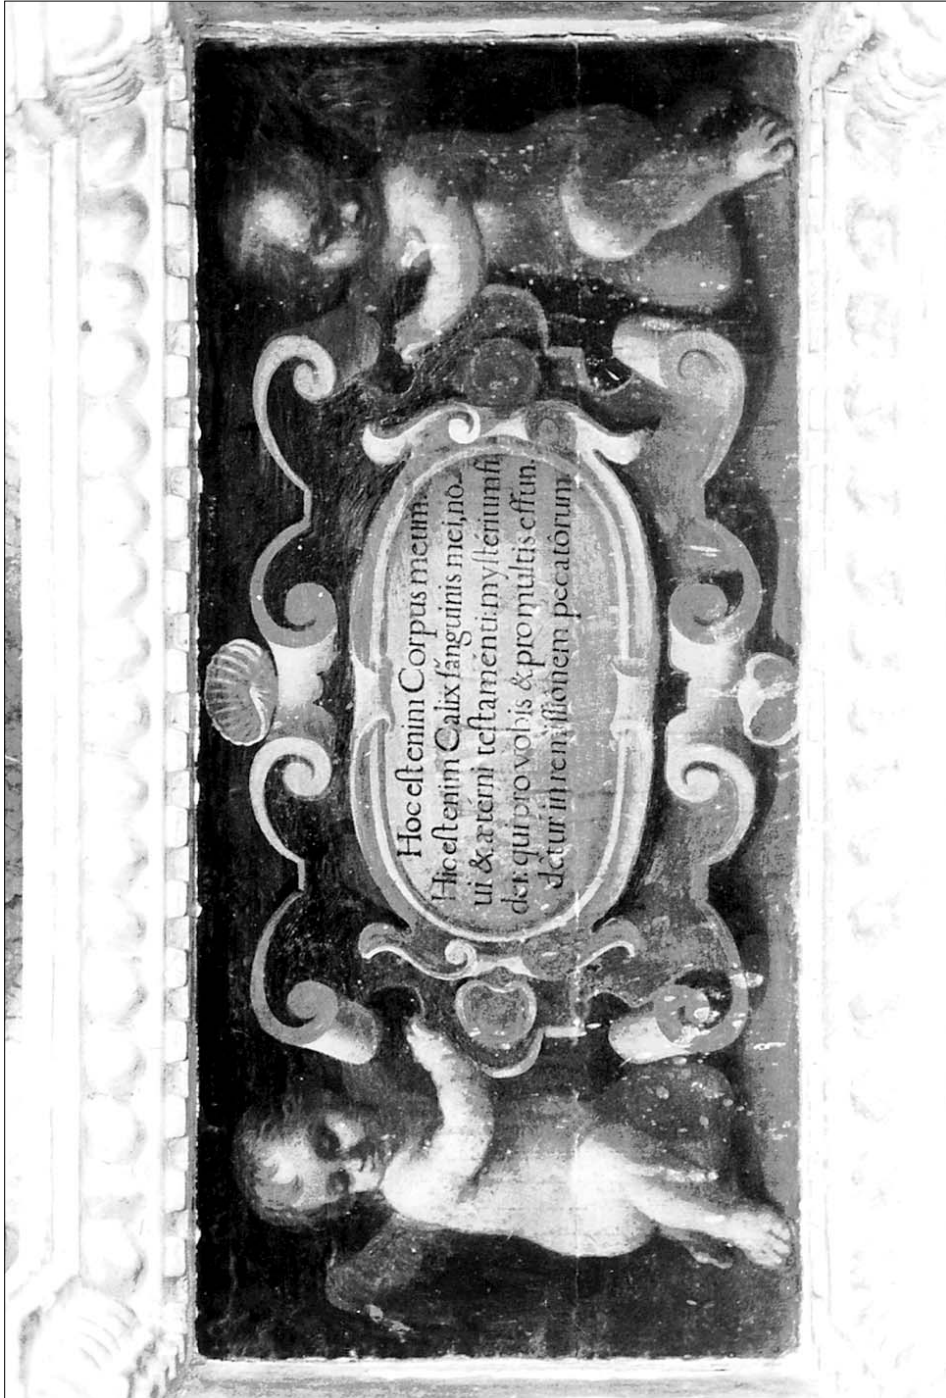 Hoc eſt enim Corpus meum.
Hic eſt enim Calix ſanguinis mei, no-
ui & æterni teſtamenti: myſterium fi
dei: qui pro vobis & pro multis effun.
detur in remiſſionem peccatorum